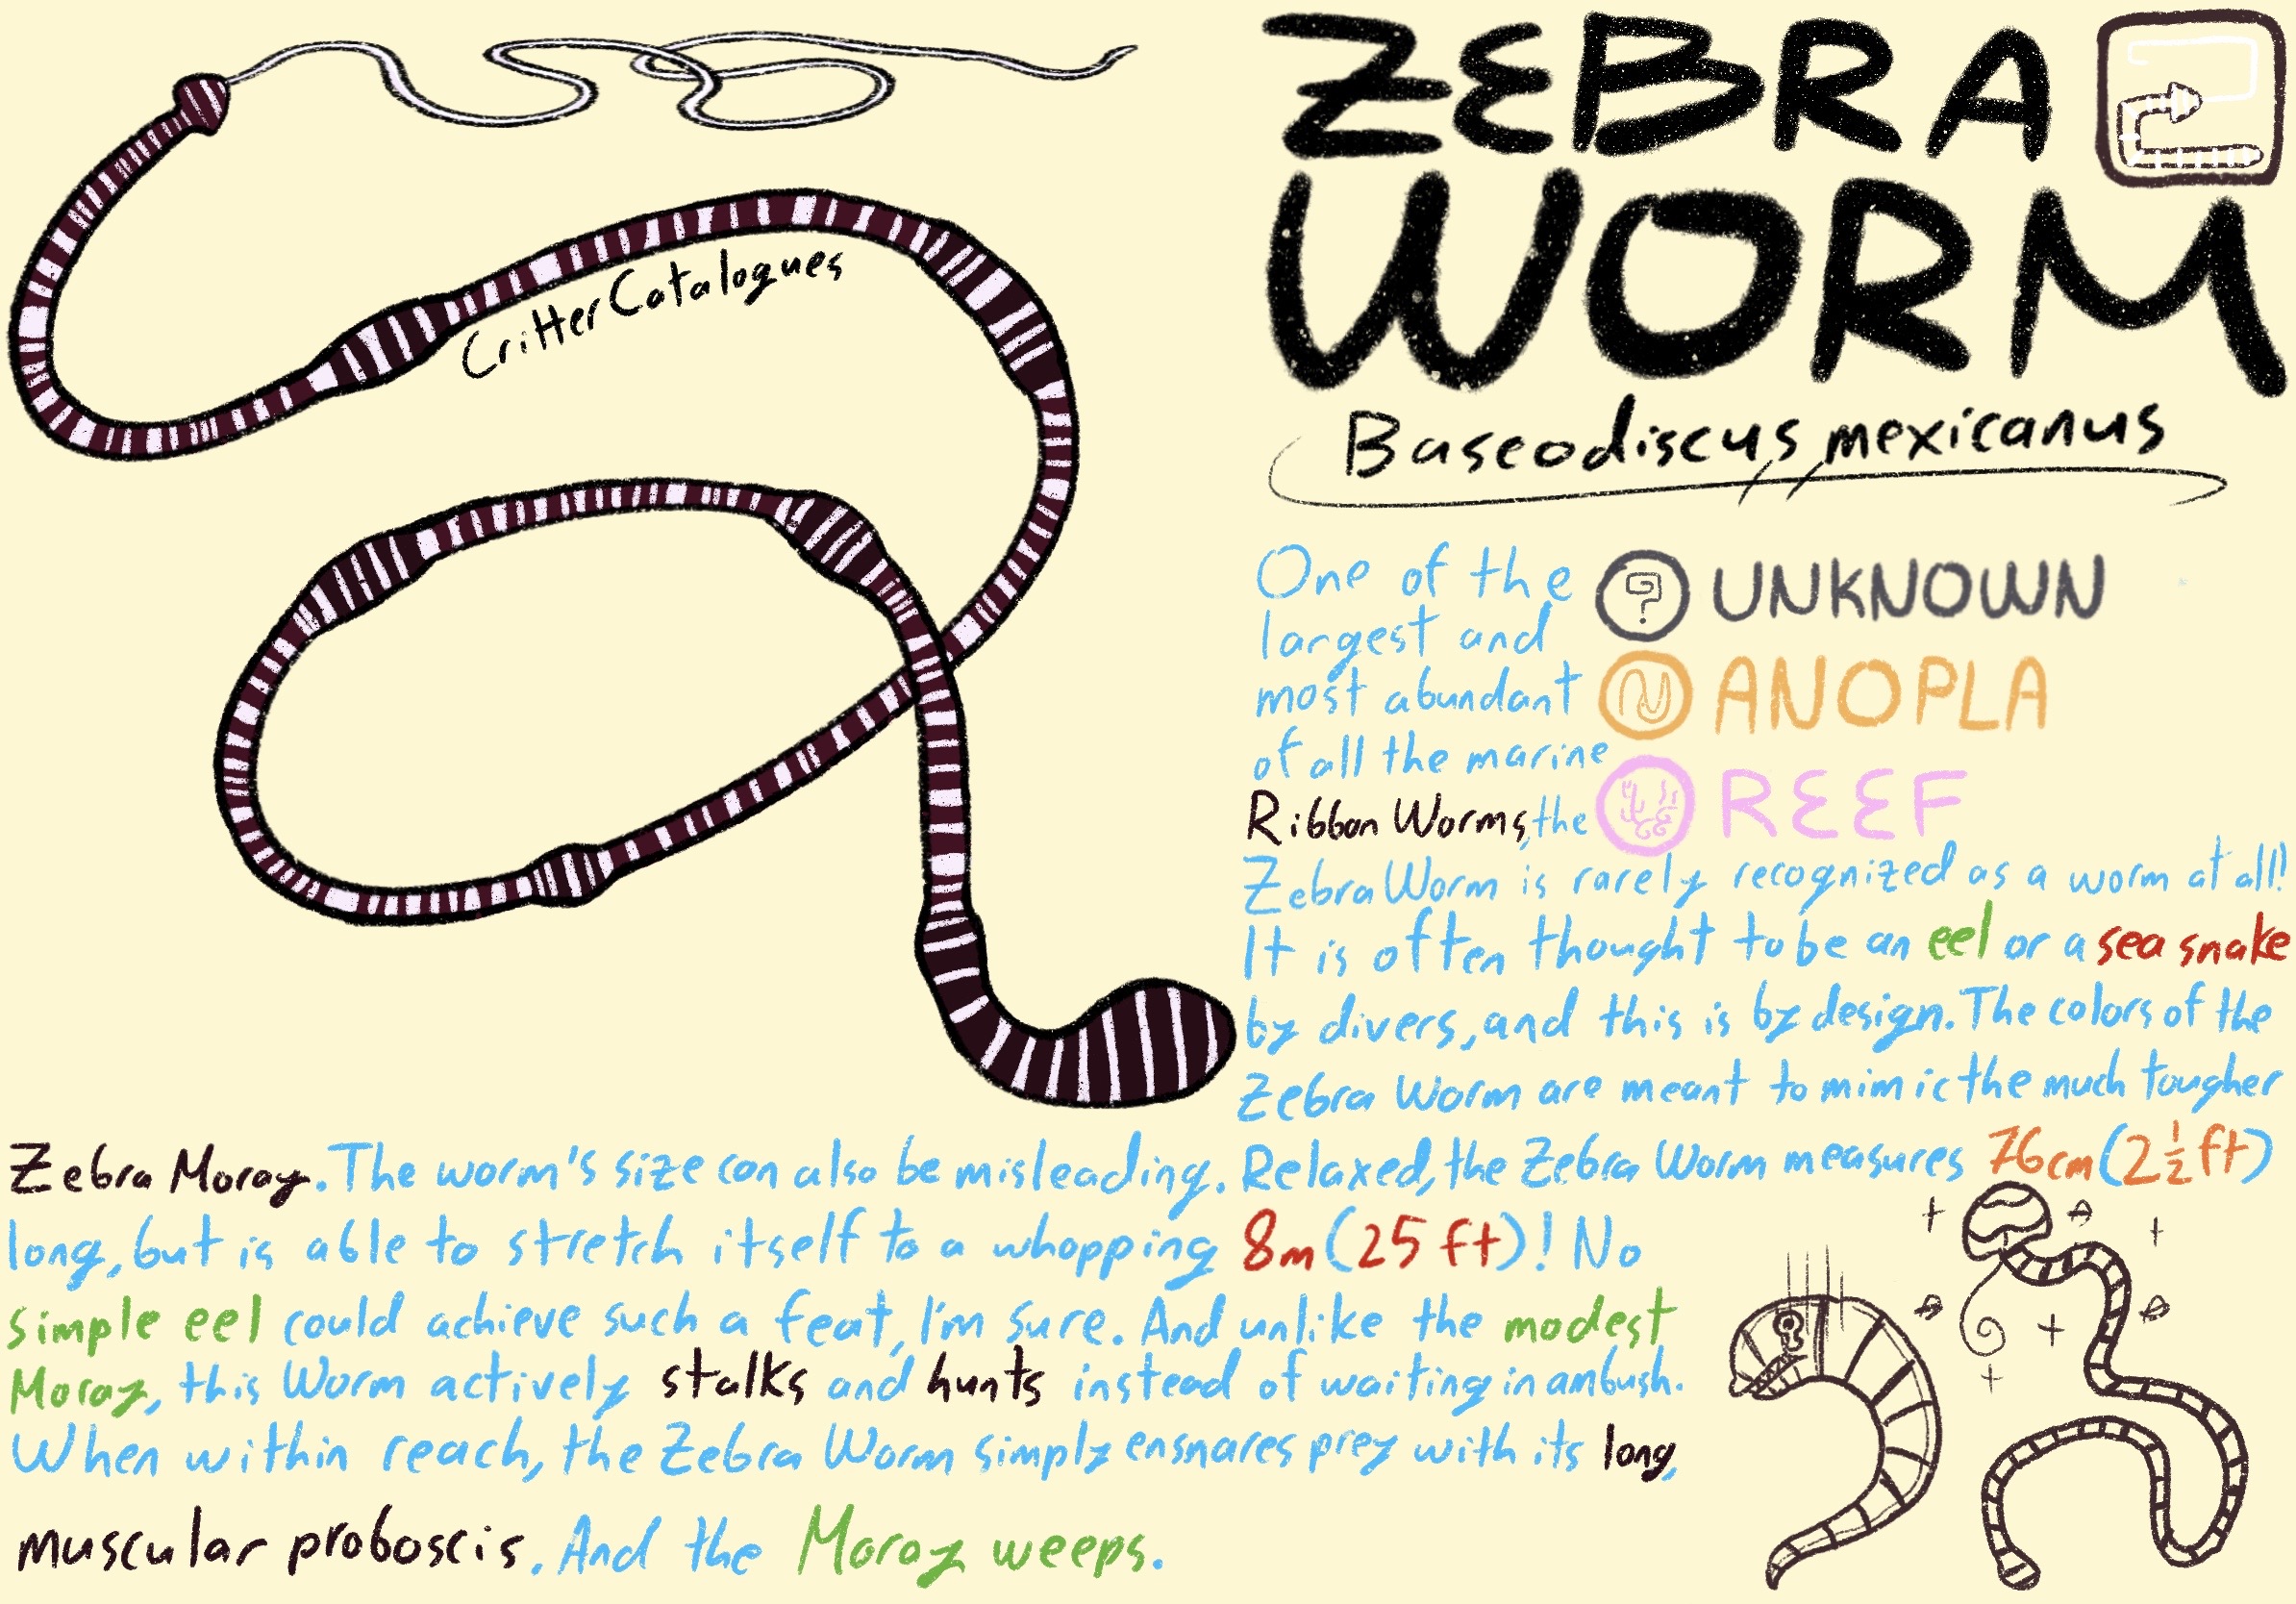 ZEBRA
WORM
Baseodiscus mexicanus
CritterCatalogues
? UNKNOWN
ANOPLA
REEF
One of the
largest and
most abundant
of all the marine
Ribbon Worms, the
Zebra Worm is rarely recognized as a worm at all!
It is often thought to be an eel or a sea snake
by divers, and this is by design. The colors of the
Zebra Worm are meant to mimic the much tougher
Zebra Moray. The worm's size can also be misleading. Relaxed, the Zebra Worm measures 76cm (2 1/2 ft)
long, but is able to stretch itself to a whopping 8m (25 ft)! No
simple eel could achieve such a feat, I'm sure. And unlike the modest
Moray, this Worm actively stalks and hunts instead of waiting in ambush.
When within reach, the Zebra Worm simply ensnares prey with its long,
muscular proboscis. And the Moray weeps.